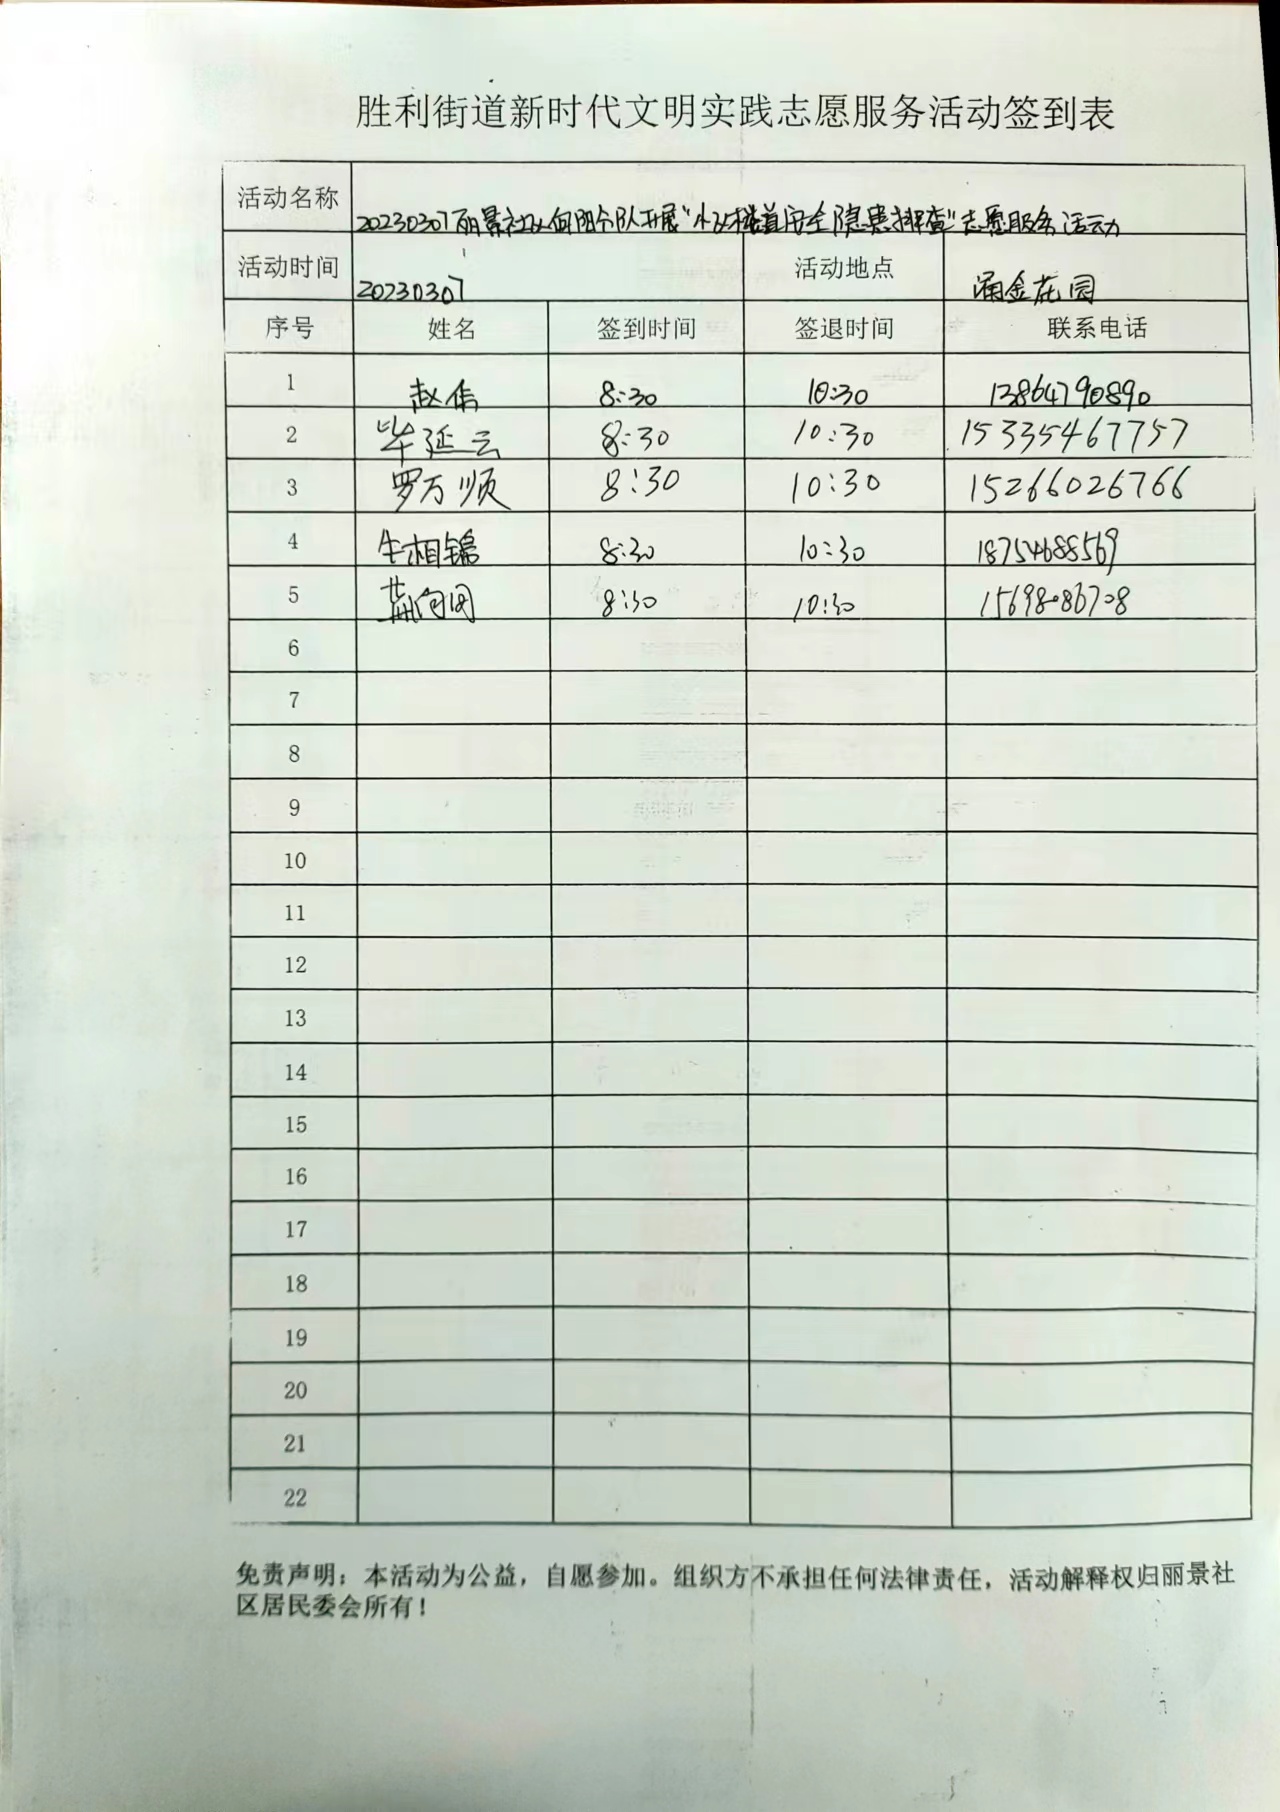 胜利街道新时代文明实践志愿服务活动签到表
活动名称 20230307丽景社区向阳分队开展“小区楼道安全隐患排查”志愿服务活动
活动时间 20230307 活动地点 涌金花园
序号 姓名 签到时间 签退时间 联系电话
1 赵伟 8:30 10:30 13864790890
2 毕延云 8:30 10:30 15335467757
3 罗万顺 8:30 10:30 15266026766
4 牛相锦 8:30 10:30 18754688569
5 8:30 10:30 15698086708
6
7
8
9
10
11
12
13
14
15
16
17
18
19
20
21
22
免责声明：本活动为公益，自愿参加。组织方不承担任何法律责任，活动解释权归丽景社
区居民委会所有！